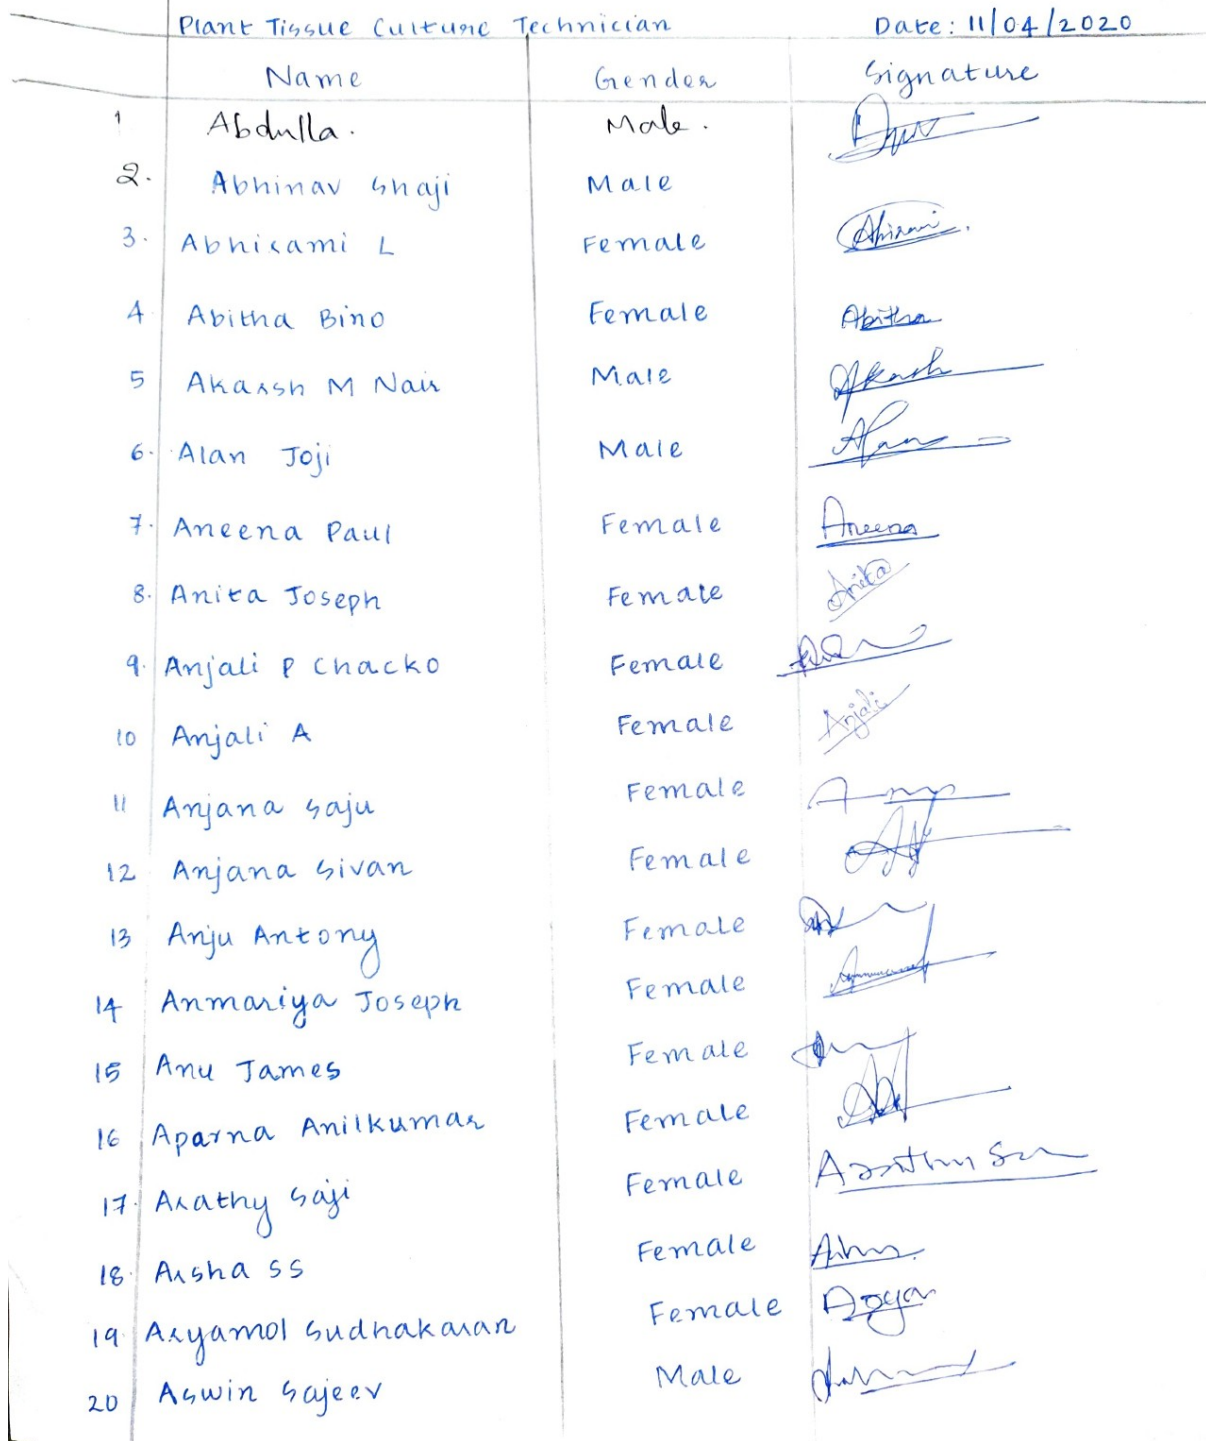 Plant Tissue Culture Technician Date: 11/04/2020
Name Gender Signature
1 Abdulla. Male.
2. Abhinav Shaji Male
3. Abhirami L Female Abirami.
4 Abitha Bino Female Abitha
5 Akarsh M Nair Male Akash
6. Alan Joji Male Alan
7. Aneena Paul Female Aneena
8. Anita Joseph Female Anita
9. Anjali P Chacko Female
10 Anjali A Female Anjali
11 Anjana Saju Female
12 Anjana Sivan Female
13 Anju Antony Female
14 Anmariya Joseph Female
15 Anu James Female
16 Aparna Anilkumar Female
17. Arathy Saji Female
18. Arsha SS Female
19. Aryamol Sudhakaran Female
20 Aswin Sajeev Male